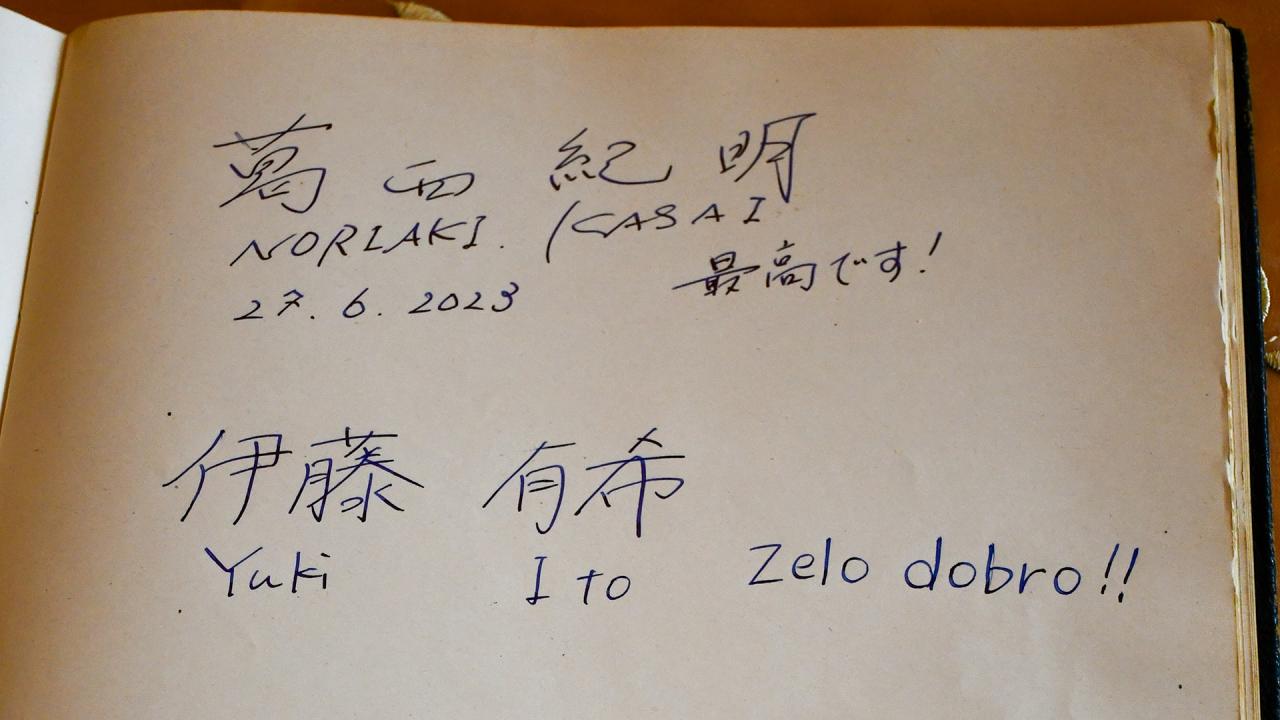 葛西紀明
NORIAKI. KASAI
最高です!
27.6.2023
伊藤 有希
Yuki Ito Zelo dobro!!